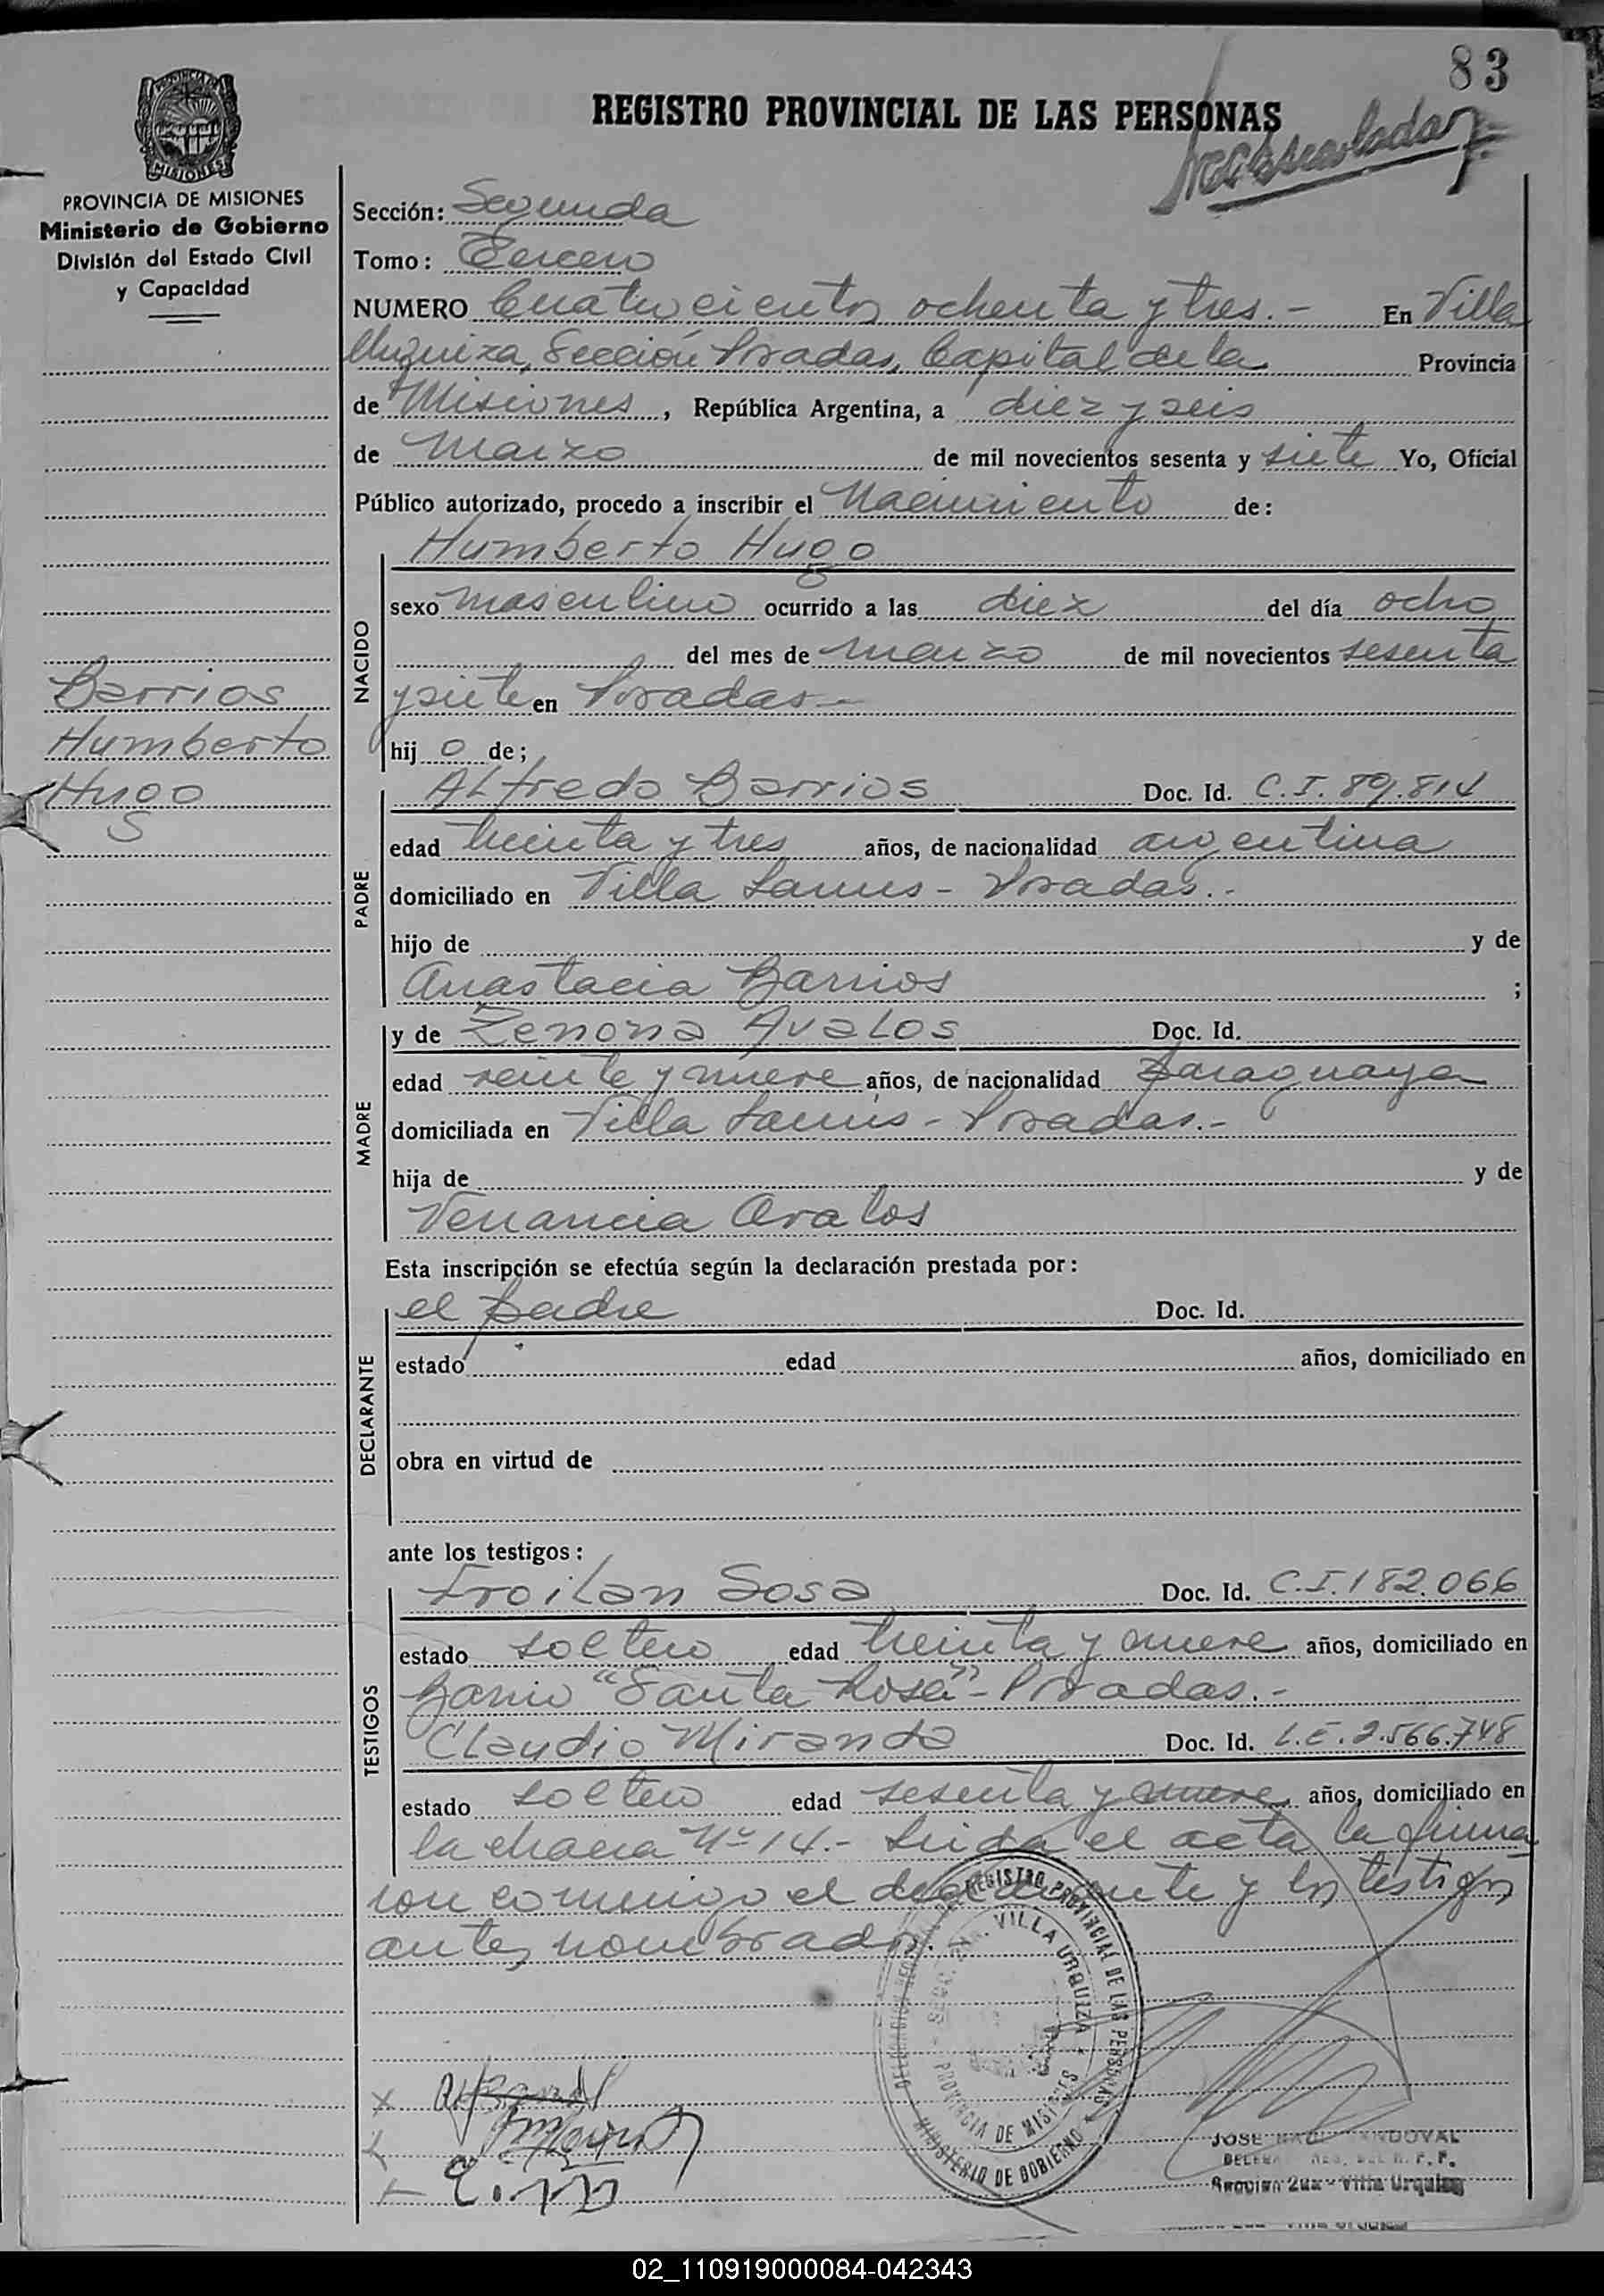 83
REGISTRO PROVINCIAL DE LAS PERSONAS
PROVINCIA DE MISIONES
Ministerio de Gobierno
División del Estado Civil
y Capacidad
Sección: Segunda
Tomo: Tercero
NUMERO Cuatrocientos ochenta y tres.- En Villa
Urquiza, Sección Posadas, Capital de la Provincia
de Misiones, República Argentina, a diez y seis
de Marzo de mil novecientos sesenta y siete Yo, Oficial
Público autorizado, procedo a inscribir el Nacimiento de:
NACIDO
Humberto Hugo
sexo masculino ocurrido a las diez del día ocho
del mes de marzo de mil novecientos sesenta
y siete en Posadas.-
hij o de;
Barrios
Humberto
Hugo
S
PADRE
Alfredo Barrios Doc. Id. C.I. 89.814
edad treinta y tres años, de nacionalidad argentina
domiciliado en Villa Lanus - Posadas.-
hijo de y de
Anastacia Barrios ;
MADRE
y de Zenona Avalos Doc. Id.
edad veinte y nueve años, de nacionalidad Paraguaya
domiciliada en Villa Lanus - Posadas.-
hija de y de
Venancia Avalos
Esta inscripción se efectúa según la declaración prestada por:
DECLARANTE
el padre Doc. Id.
estado edad años, domiciliado en
obra en virtud de
ante los testigos:
TESTIGOS
Froilan Sosa Doc. Id. C.I. 182.066
estado soltero edad treinta y nueve años, domiciliado en
Barrio "Santa Rosa" - Posadas.-
Claudio Miranda Doc. Id. L.E. 2.566.748
estado soltero edad sesenta y nueve años, domiciliado en
la chacra Nº 14.- Leída el acta la firma
ron conmigo el declarante y los testigos
antes nombrados.
REGISTRO PROVINCIAL DE LAS PERSONAS
VILLA URQUIZA
PROVINCIA DE MISIONES
MINISTERIO DE GOBIERNO
JOSE SANDOVAL
Seccion 2da - Villa Urquiza
02_110919000084-042343